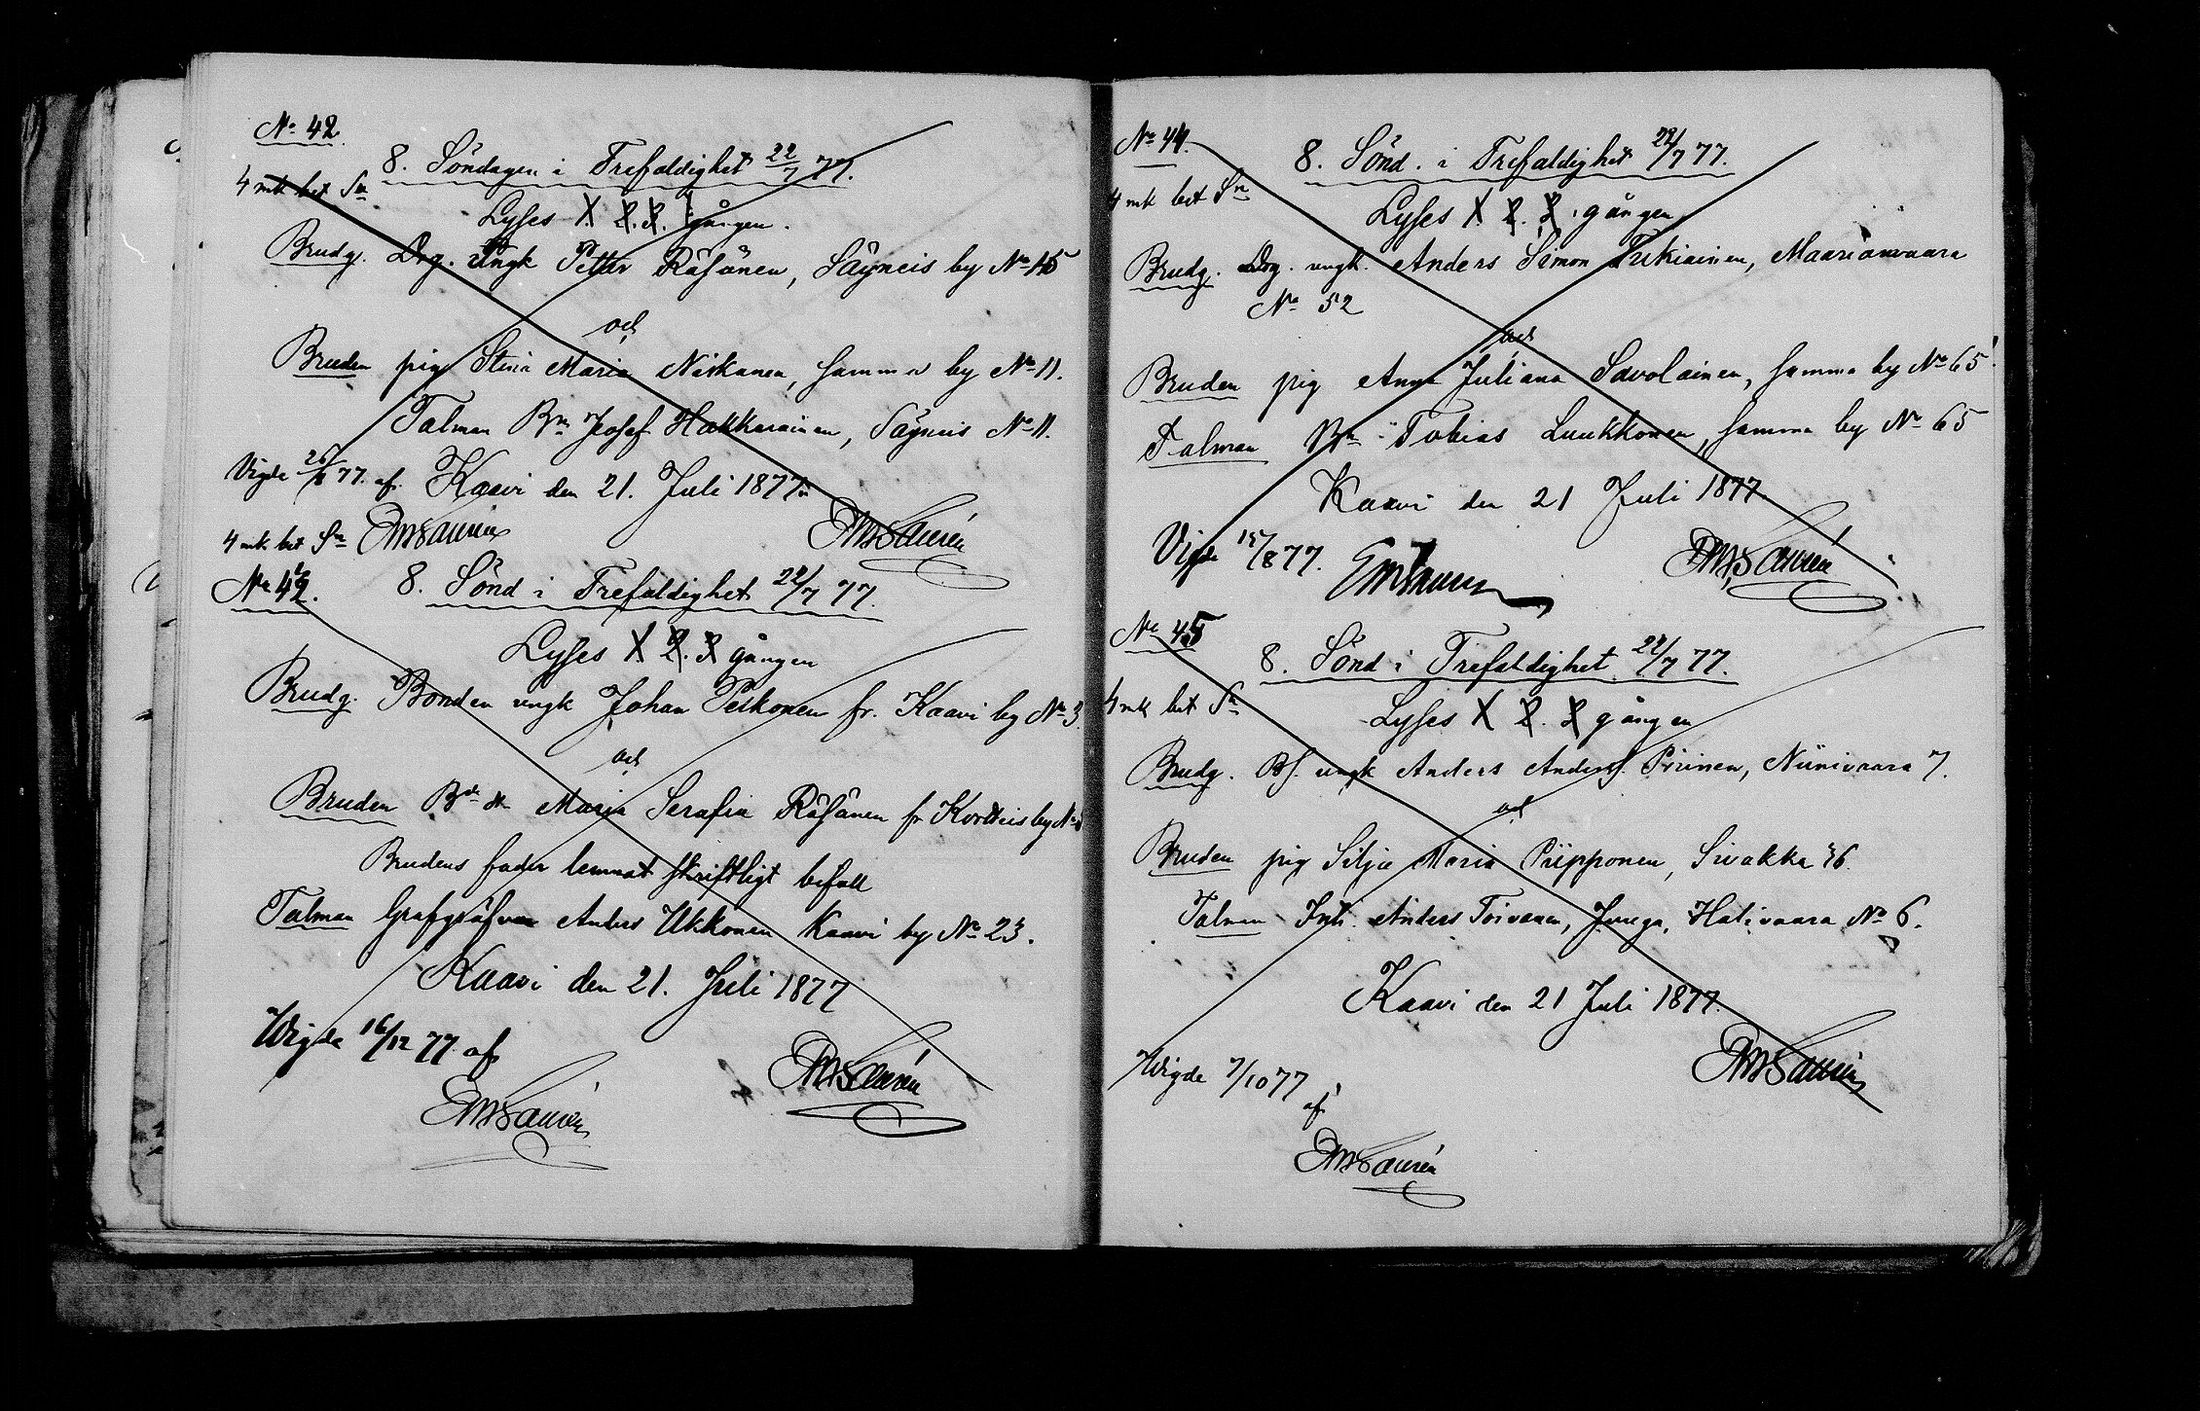 No 42.
8. Söndagen i Trefaldighet 22/7 77.
4 mk bet Sn
Lyses 1. 2. 3. gången.
Brudg. Drg. Ungk Petter Räsänen, Säyneis by No 15
och
Bruden pig Stina Maria Niskanen, samma by No 11.
Talman Bn Josef Hakkarainen, Säyneis No 11.
Vigde 26/8 77. af. Kaavi den 21. Juli 1877.
EMSaurén EMSaurén
4 mk bet Sn
No 43. 8. Sönd i Trefaldighet 22/7 77.
Lyses 1 2. 3 gången
Brudg. Bonden ungk Johan Peskonen fr. Kaavi by No 3
och
Bruden Bde dr Maria Serafia Räsänen fr by No
Brudens fader lemnat skriftligt bifall
Talman Anders Ukkonen Kaavi by No 23.
Kaavi den 21. Juli 1877
Wigde 16/12 77 af
EMSaurén
EMSaurén
No 44.
8. Sönd. i Trefaldighet 22/7 77.
4 mk bet Sn
Lyses 1 2. 3. gången
Brudg. Drg. ungk. Anders Simon Tukiainen, Maarianvaara
No 52
och
Bruden pig Anna Juliana Savolainen, samma by No 65.
Talman Bn Tobias Luukkonen, samma by No 65
Kaavi den 21 Juli 1877
EMSaurén
Vigde 15/8 77. EMSaurén
No 45
8. Sönd i Trefaldighet 22/7 77.
4 mk bet Sn
Lyses 1 2. 3 gången
Brudg. Bs. ungk Anders Anders. Pirinen, Niinivaara 7.
och
Bruden pig Silja Maria Piipponen, Sivakka 46.
Talman Inh. Anders Toivanen, Juuga, Halivaara No 6.
Kaavi den 21 Juli 1877.
EMSaurén
Wigde 7/10 77
af
EMSaurén